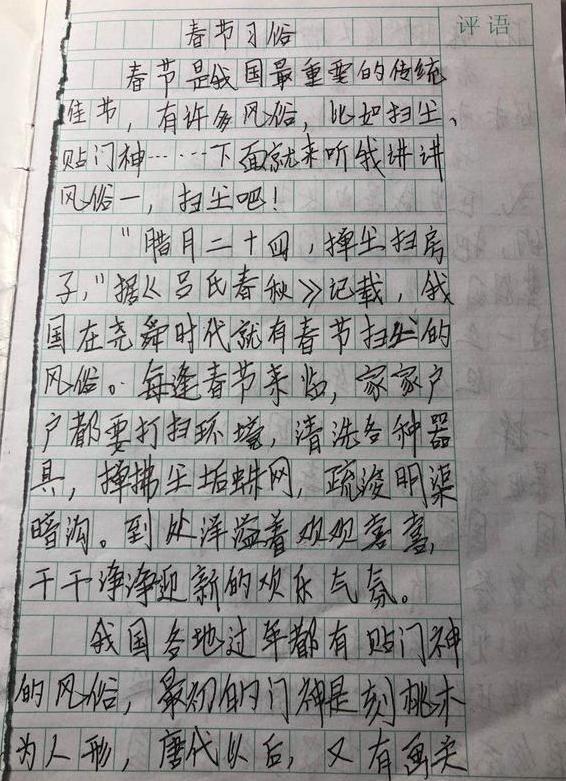 春节习俗
评语
春节是我国最重要的传统
佳节，有许多风俗，比如扫尘、
贴门神……下面就来听我讲讲
风俗一，扫尘吧！
"腊月二十四，掸尘扫房
子，"据《吕氏春秋》记载，我
国在尧舜时代就有春节扫尘的
风俗。每逢春节来临，家家户
户都要打扫环境，清洗各种器
具，掸拂尘垢蛛网，疏浚明渠
暗沟。到处洋溢着欢欢喜喜，
干干净净迎新的欢乐气氛。
我国各地过年都有贴门神
的风俗，最初的门神是刻桃木
为人形，唐代以后，又有画关